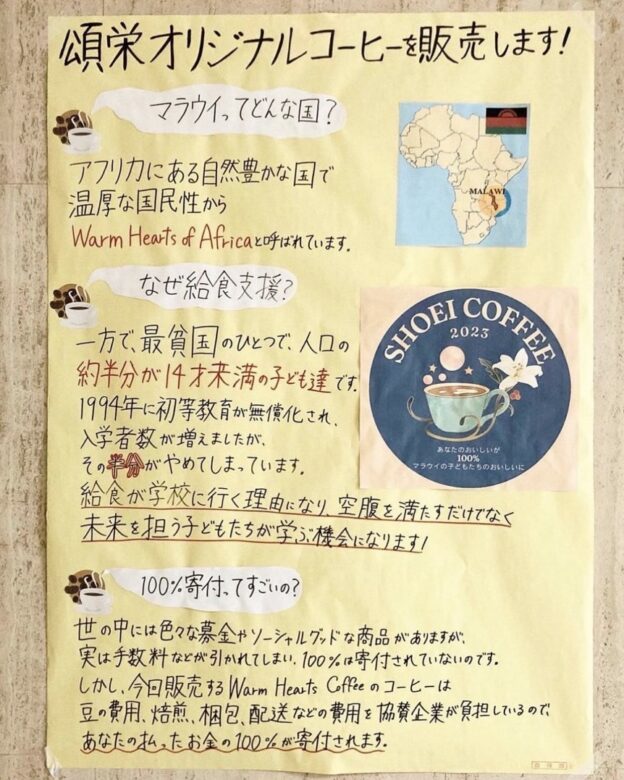 頌栄オリジナルコーヒーを販売します!
マラウイってどんな国?
アフリカにある自然豊かな国で
温厚な国民性から
Warm Hearts of Africaと呼ばれています。
MALAWI
なぜ給食支援?
一方で、最貧国のひとつで、人口の
約半分が14才来満の子ども達です。
1994年に初等教育が無償化され、
入学者数が増えましたが、
その半分がやめてしまっています。
給食が学校に行く理由になり、空腹を満たすだけでなく
未来を担う子どもたちが学ぶ機会になります!
SHOEI COFFEE
2023
あなたのおいしいが
100%
マラウイの子どもたちのおいしいに
100%寄付ってすごいの?
世の中には色々な募金やソーシャルグッドな商品がありますが、
実は手数料などが引かれてしまい、100%は寄付されていないのです。
しかし、今日販売するWarm Hearts Coffeeのコーヒーは
豆の費用、焙煎、梱包、配送などの費用を協賛企業が負担しているので、
あなたの払ったお金の100%が寄付されます。